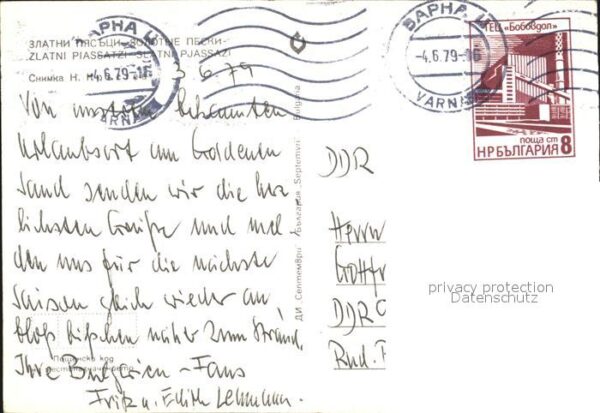 ЗЛАТНИ ПЯСЪЦИ-ЗОЛОТЫЕ ПЕСКИ-
ZLATNI PIASSATZI-SLATNI PJASSAZI
Снимка Н.
3.6.79
Von unserem bekannten
Urlaubsort am Goldenen
Sand senden wir die herz
lichsten Grüße und mel-
den uns für die nächste
Saison gleich wieder an,
bloß bißchen näher zum Strand.
Ihre Bulgarien-Fans
Fritz u. Edith Lehmann.
Пощенски код
местоназначението
ДИ „Септември" България „Septemvri" Bulgaria
ВАРНА
-4.6.79-16
VARNA
ВАРНА
-4.6.79-16
VARNA
ТЕЦ „Бобовдол"
поща ст 8
НР БЪЛГАРИЯ
DDR
Herrn
Gottfr
DDR
Rud.
privacy protection
Datenschutz